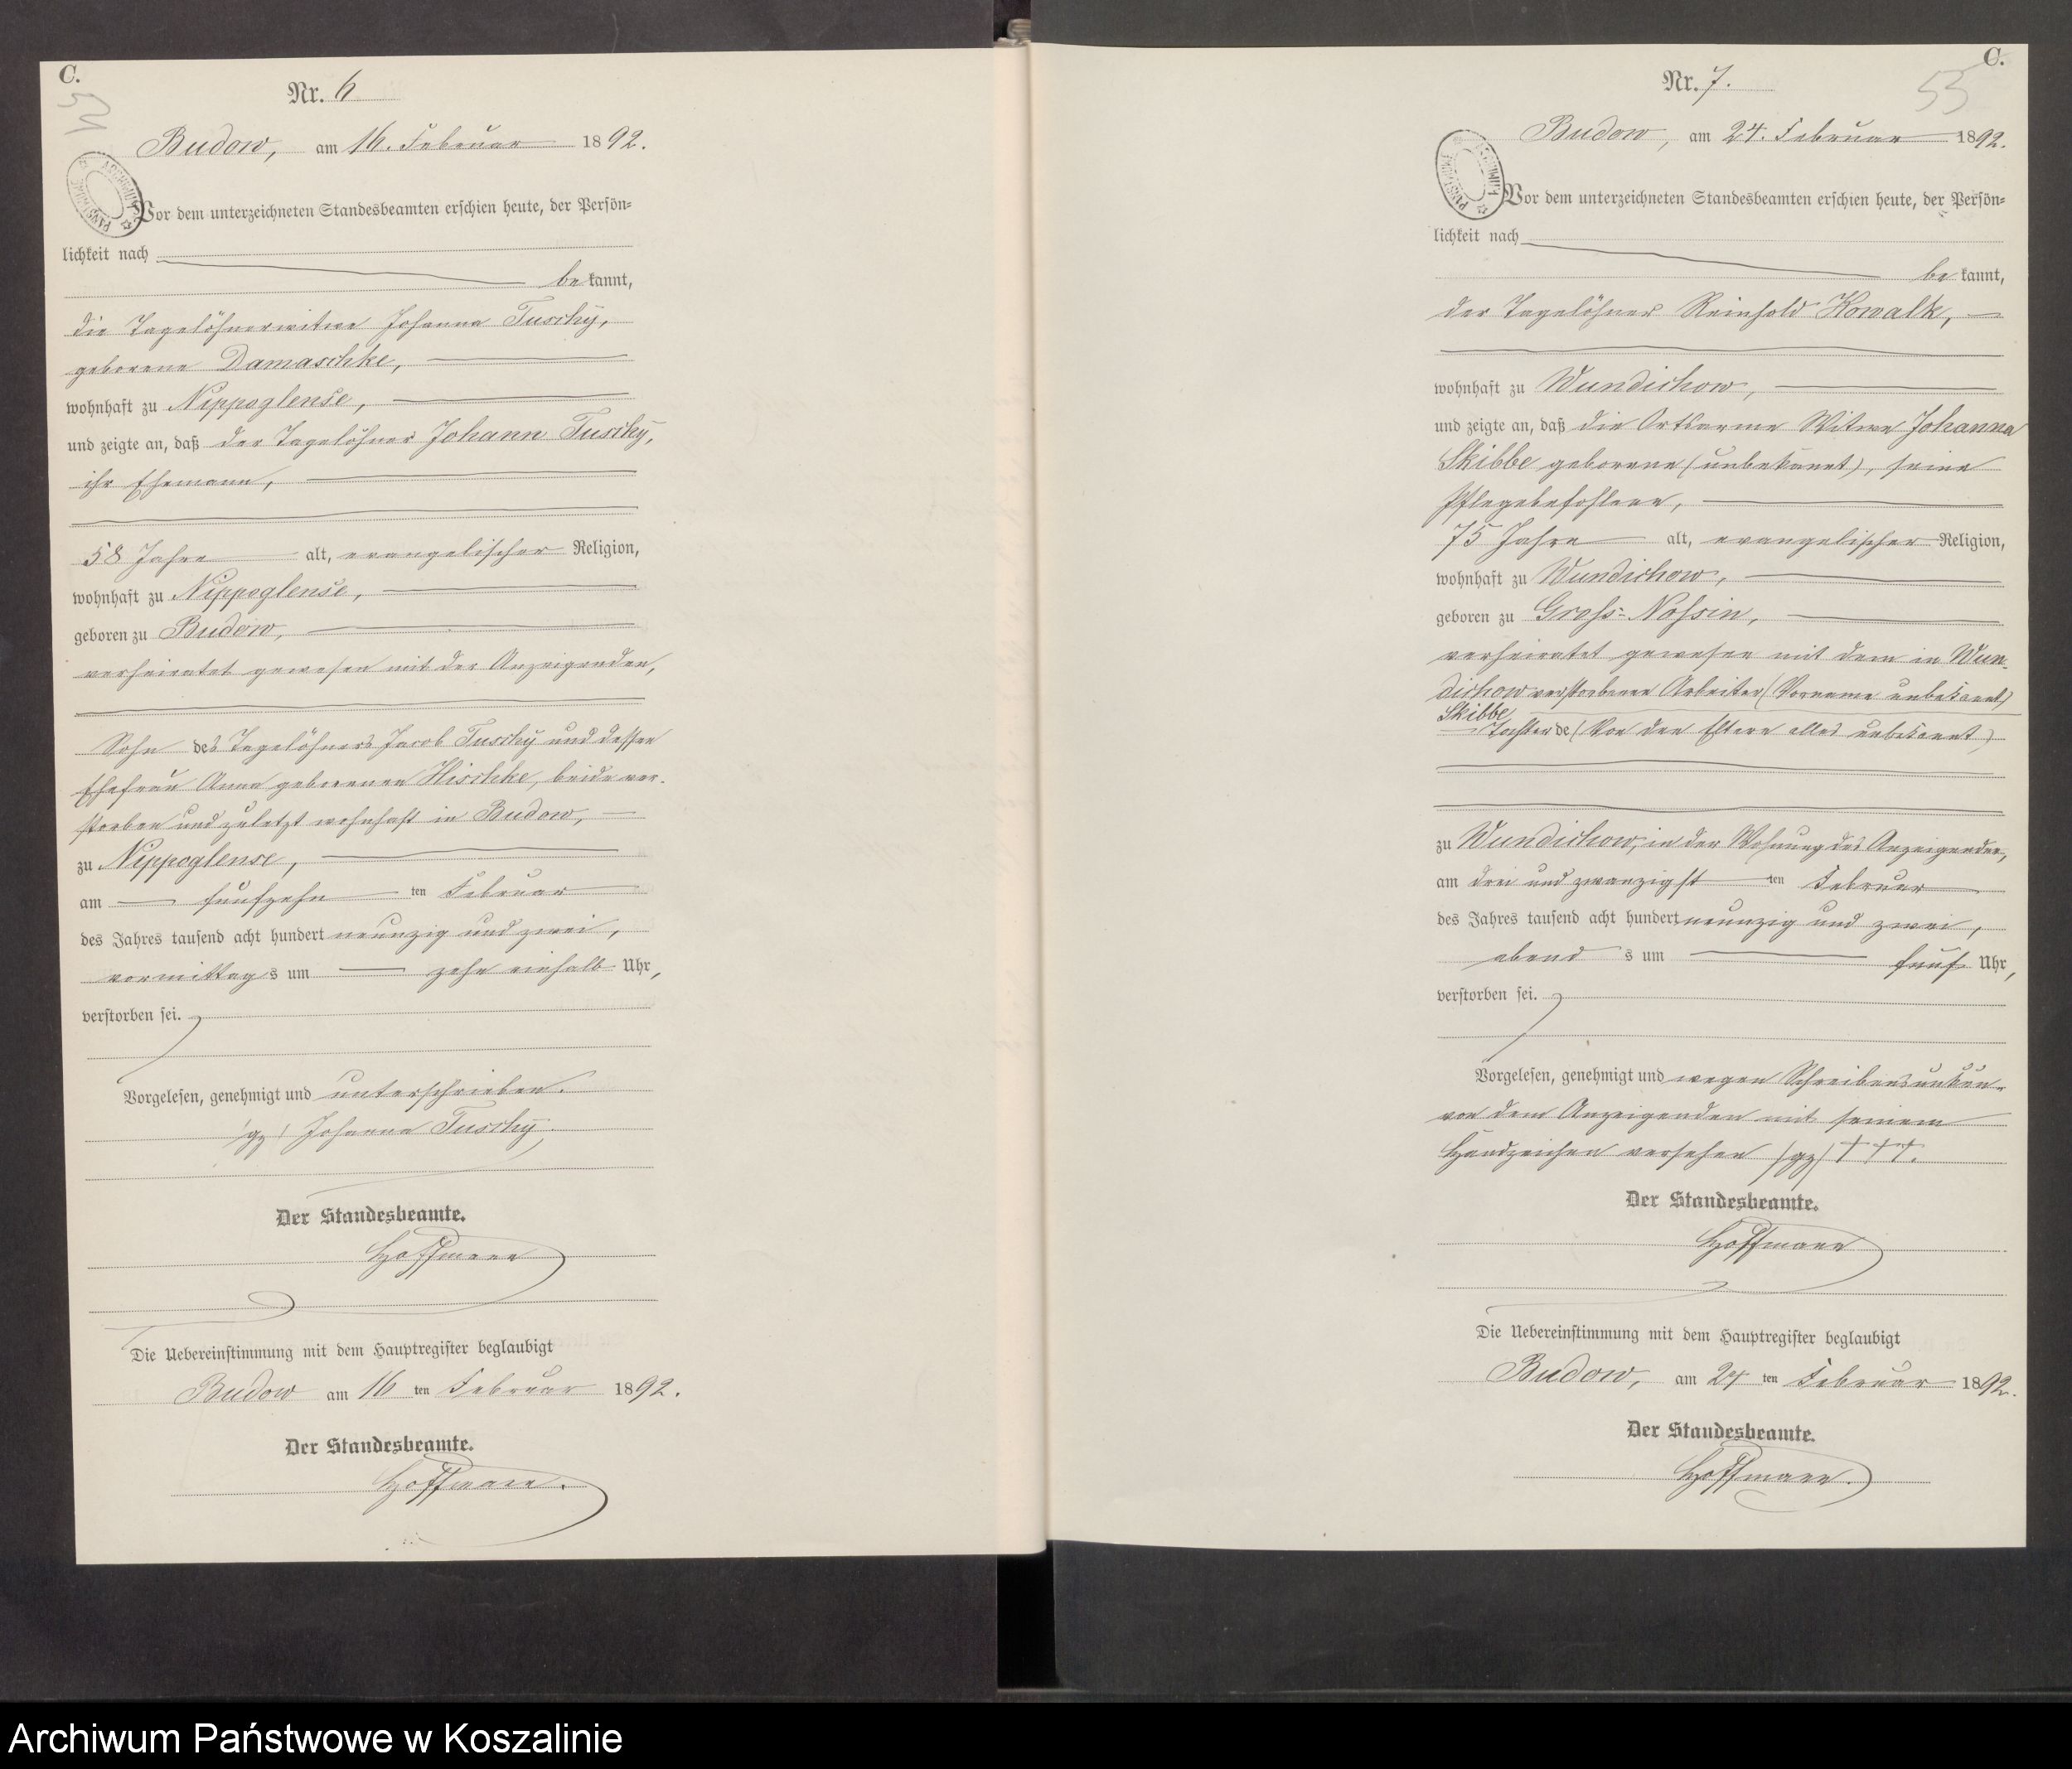 C.
54
Nr. 6
Budow, am 16. Februar 1892.
Vor dem unterzeichneten Standesbeamten erschien heute, der Persön=
lichkeit nach
be kannt,
die Tagelöhnerwitwe Johanna Tuschy,
geborene Damaschke,
wohnhaft zu Nippoglense,
und zeigte an, daß der Tagelöhner Johann Tuschy,
ihr Ehemann,
58 Jahre alt, evangelischer Religion,
wohnhaft zu Nippoglense,
geboren zu Budow,
verheiratet gewesen mit der Anzeigenden,
Sohn des Tagelöhners Jacob Tuschy und dessen
Ehefrau Anna geborenen Hischke, beide ver-
storben und zuletzt wohnhaft in Budow,
zu Nippoglense,
am fünfzehn ten Februar
des Jahres tausend acht hundert neunzig und zwei,
vormittag s um zehn einhalb Uhr,
verstorben sei.
Vorgelesen, genehmigt und unterschrieben.
/gz/ Johanna Tuschy.
Der Standesbeamte.
Hoffmann
Die Uebereinstimmung mit dem Hauptregister beglaubigt
Budow am 16 ten Februar 1892.
Der Standesbeamte.
Hoffmann.
C.
55
Nr. 7.
Budow, am 24. Februar 1892.
Vor dem unterzeichneten Standesbeamten erschien heute, der Persön=
lichkeit nach
be kannt,
der Tagelöhner Reinhold Kowalk,
wohnhaft zu Wundichow,
und zeigte an, daß die Ortsarme Witwe Johanna
Skibbe geborene (unbekannt), seine
Pflegebefohlene,
75 Jahre alt, evangelischer Religion,
wohnhaft zu Wundichow,
geboren zu Gross-Nossin,
verheiratet gewesen mit dem in Wun-
dichow verstorbenen Arbeiter (Vorname unbekannt)
Skibbe,
Tochter de (Von den Eltern alles unbekannt)
zu Wundichow, in der Wohnung des Anzeigenden,
am drei und zwanzigst ten Februar
des Jahres tausend acht hundert neunzig und zwei,
abend s um fünf Uhr,
verstorben sei.
Vorgelesen, genehmigt und wegen Schreibensunkun-
von dem Anzeigenden mit seinem
Handzeichen versehen /gz/ +++.
Der Standesbeamte.
Hoffmann
Die Uebereinstimmung mit dem Hauptregister beglaubigt
Budow, am 24 ten Februar 1892.
Der Standesbeamte.
Hoffmann.
Archiwum Państwowe w Koszalinie